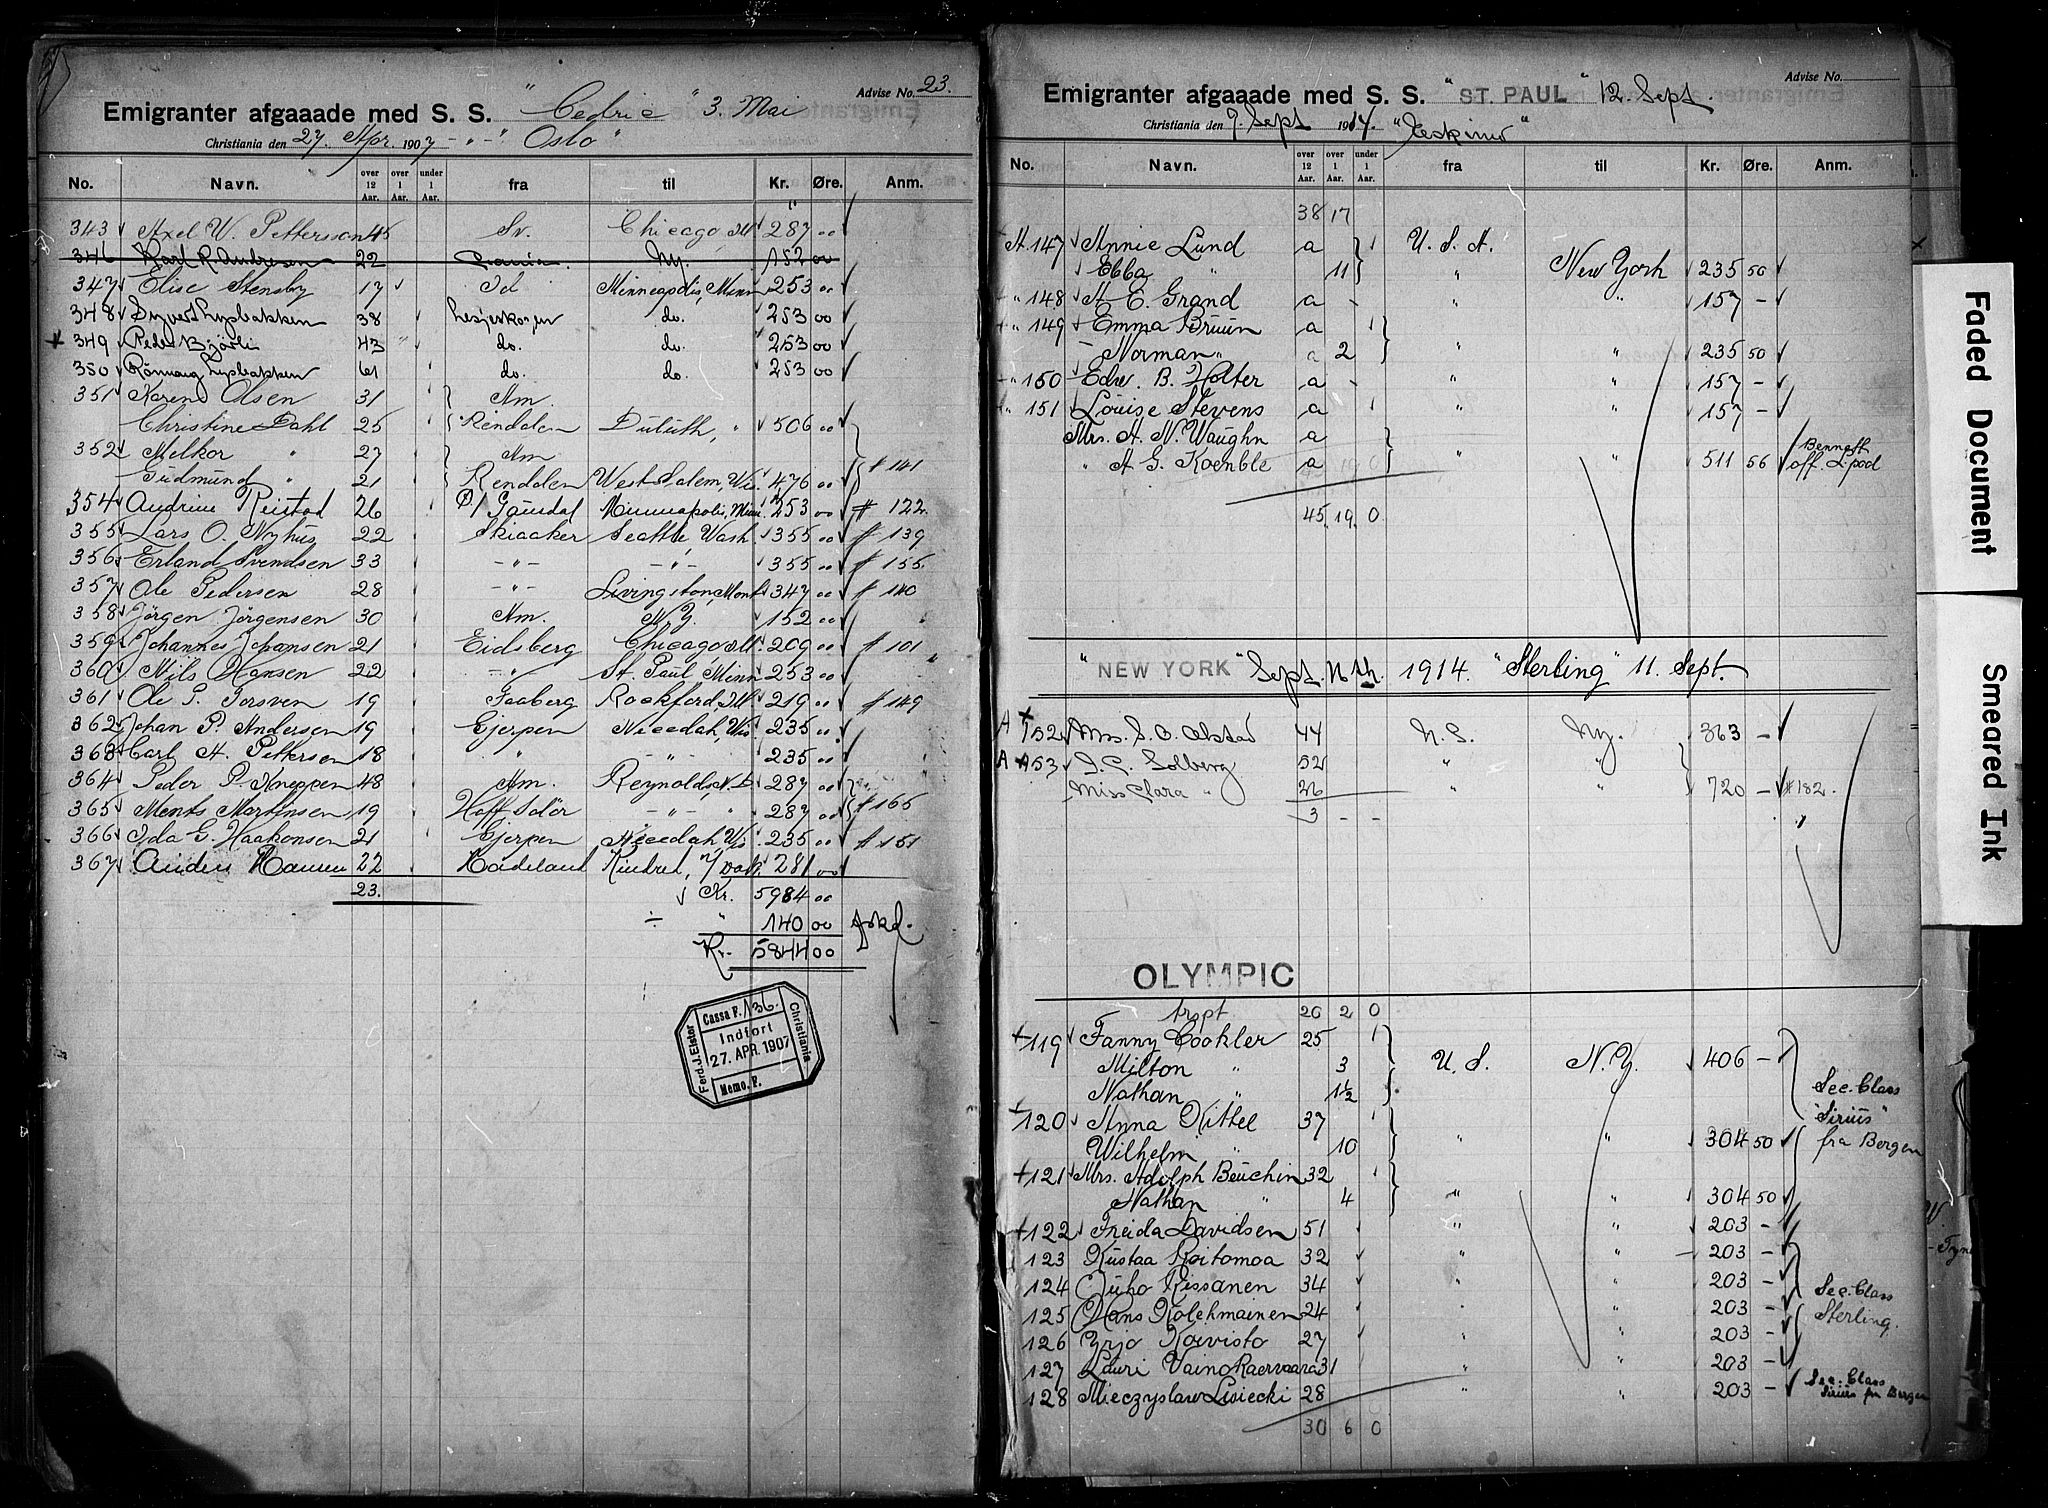 Advise No. 23.
Emigranter afgaaade med S. S. "Cedric" 3. Mai
Christiania den 27. Apr. 1907 -"-" Oslo"
No. Navn. over 12 Aar. over 1 Aar. under 1 Aar. fra til Kr. Øre. Anm.
343 Axel W. Pettersson 45 Sv. Chicago, Ill 287 00
346 Karl R. Andresen 22 Ny. 152 00
347 Elise Stensby 17 Id Minneapolis, Minn 253 00
348 38 Lesjeskogen do. 253 00
349 Peder Bjorli 43 do. do. 253 00
350 61 do. do. 253 00
351 Karen Olsen 31 Am.
Christine Dahl 25 Rendalen Duluth, " 506 00
352 Melkor " 27 Am
Gudmund " 21 Rendalen West Salem, Wis. 476 00 # 141
354 Andrine Reistad 26 Ø/ Gausdal Minneapolis, Minn. 253 00 # 122
355 Lars O. Nyhus 22 Skiaaker Seattle Wash 355 00 # 139
356 Erland Svendsen 33 -"- -"- 355 00 # 155
357 Ole Pedersen 28 -"- Livingston, Mont 347 00 # 140
358 Jörgen Jörgensen 30 Am. N.Y. 152 00
359 Johannes Johansen 21 Eidsberg Chicago Ill. 209 00 # 101
360 Nils Hansen 22 -"- St. Paul, Minn 253 00
361 Ole P. Torsven 19 Faaberg Rockford, Ill 219 00 # 149
362 Johan P. Andersen 19 Gjerpen Necedah, Wis 235 00
363 Carl A. Pettersen 18 " -"- 235 00
364 Peder P. Kneppen 48 Am. Reynolds, N.D. 287 00
365 Ments Martinsen 19 Hoff Solör -"- " 287 00 # 165
366 Ida G. Haakonsen 21 Gjerpen Necedah, Wis 235 00 # 151
367 Anders Hansen 22 Hadeland Kindred, N/Dak 281 00
23. Kr. 5984 00
÷ " 140 00
Kr. 5844 00
Cassa F. 136.
Indført
27. APR. 1907
Memo. F.
Ferd. J. Elster
Christiania
Advise No.
Emigranter afgaaade med S. S. "ST. PAUL" 12. Sept.
Christiania den 9. Sept 1914. "Eskimo"
No. Navn. over 12 Aar. over 1 Aar. under 1 Aar. fra til Kr. Øre. Anm.
38 17
A. 147 Annie Lund a U. S. A.
Ebba " 11 " New York 235 50
" 148 A. E. Grand a - " " 157 -
" 149 Emma Bruun a
Norman " a 2 " " 235 50
" 150 Edw. B. Holter a - 157 -
" 151 Louise Stevens a " " 157 -
Mrs. A. N. Waughn a
" A. G. Koenble a " " 511 56 Bennett off. L.pool
45. 19. 0
"NEW YORK" Sept. 11th. 1914. "Sterling" 11. Sept.
A 152 Mrs. S. O. Alstad 44 U. S. Ny. 363 -
A 153 I. C. Solberg 52 " "
Miss Clara " 26 " " 720 - # 182.
3 - -
OLYMPIC
trspt 26 2 0
119 Fanny Cookler 25
Milton " 3 U. S. N. Y. 406 -
Nathan " 1½ Sec. Class
120 Anna Kittel 37 "Sirius"
Wilhelm " 10 " " 304 50 fra Bergen
121 Mrs. Adolph Beuchin 32
Nathan " 4 " " 304 50
122 Freida Davidsen 51 " " 203 -
123 Kustaa Koitomoa 32 " " 203 -
124 Juho Kissanen 34 " " 203 - Sec. Class
125 Hans Kolehmainen 24 " " 203 - Sterling.
126 Yrjo Koivisto 27 " " 203 -
127 Lauri Vaino Raervaara 31 " " 203 -
128 Mieczyslaw Lisiecki 28 " " 203 - Sec. Class Sirius fra Bergen
30 6 0
Faded Document
Smeared Ink